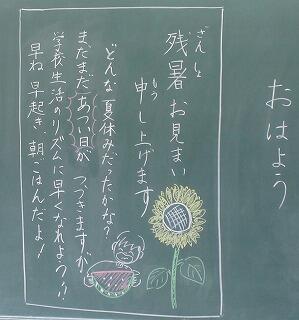 おはよう
ざんしょ
残暑お見まい
もう
申し上げます
どんな夏休みだったかな?
まだまだあつい日が、つづきますが、
学校生活のリズムに早くなれよう!!
早ね早起き、朝ごはんだよ!